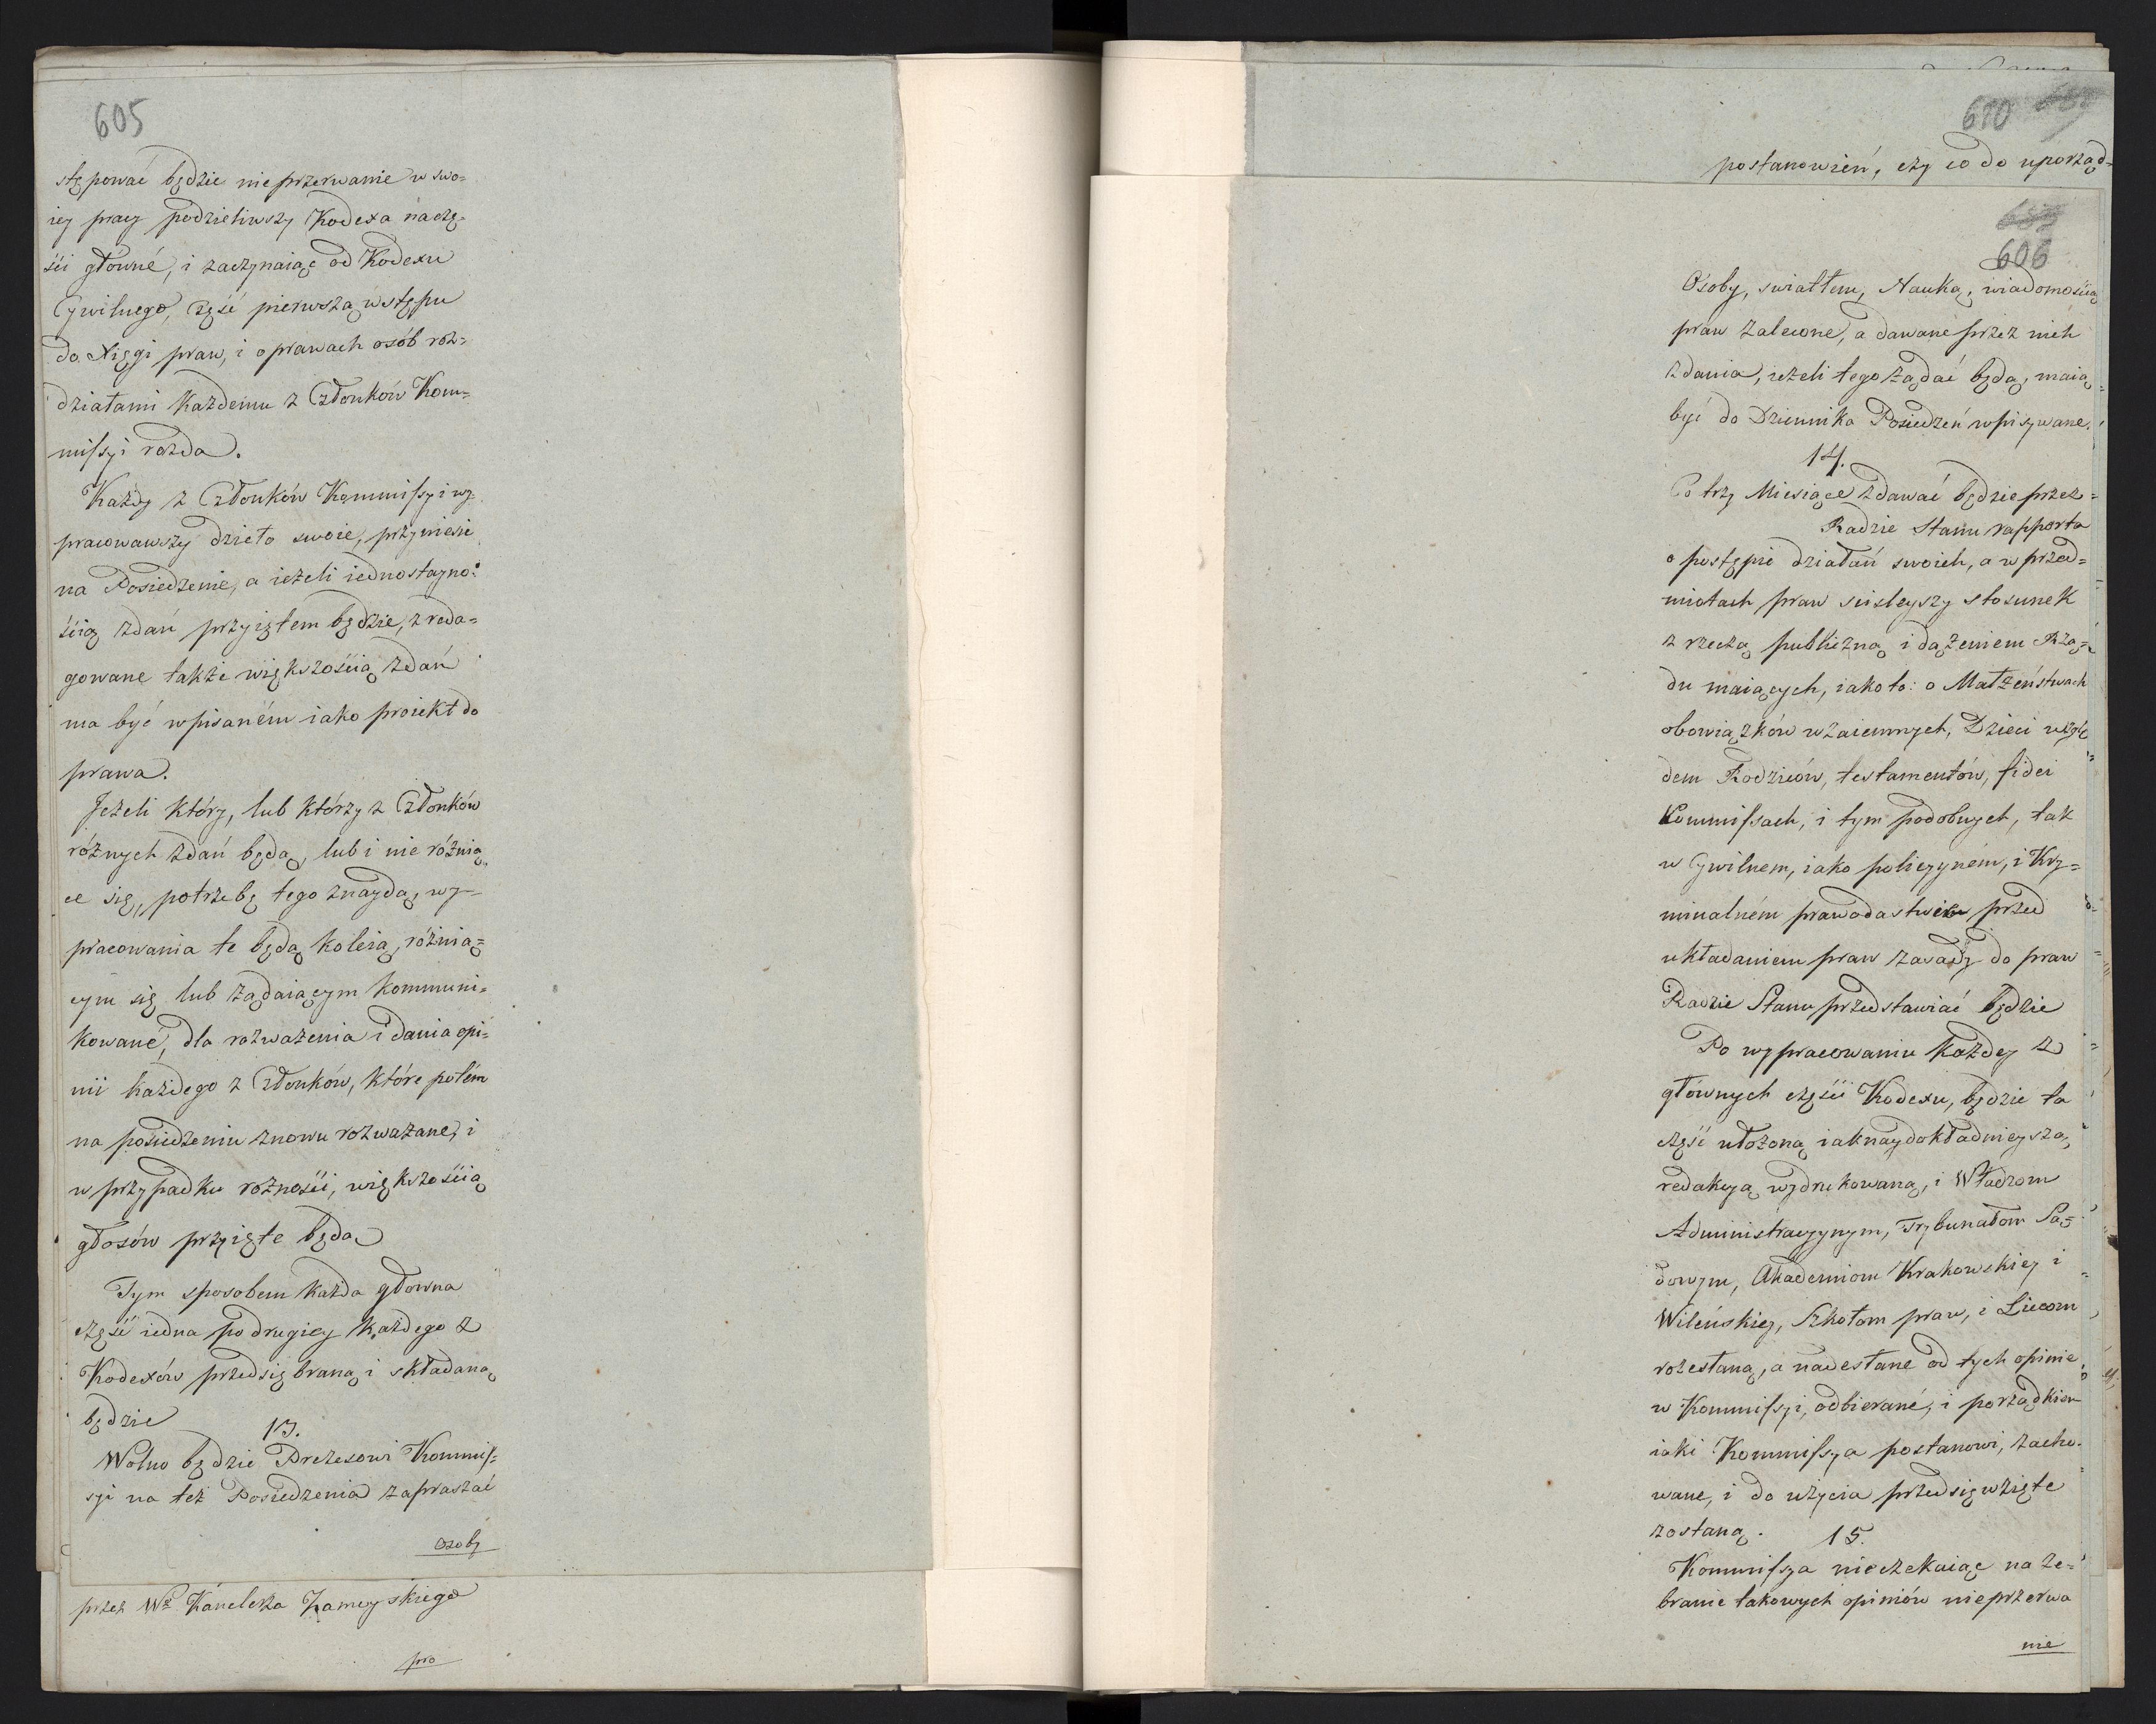 605
stępować będzie nieprzerwanie w swo=
iey pracy podzieliwszy Kodexa na czę=
ści główné, i zaczynaiąc od Kodexu
Cywilnego, część pierwszą wstępu
do Xięgi praw, i o prawach osób roz=
działami Każdemu z Członków Kom=
missyi rozda.
Każdy z Członków Kommissyi wy=
pracowawszy dzieło swoie, przyniesie
na Posiedzenie, a ieżeli iednostayno=
ścią zdań przyiętem będzie, zreda=
gowane także większością zdań
ma być wpisaném iako proiekt do
prawa.
Jeżeli który, lub którzy z Członków
różnych zdań będą, lub i nie różnią=
ce się, potrzebę tego znaydą, wy=
pracowania te będą koleią, różnią=
cym się lub żądaiącym kommuni=
kowané, dla rozważenia i dania opi=
nii każdego z Członków, które potém
na posiedzeniu znowu rozważane, i
w przypadku rozności, większością
głosów przyięte będą
Tym sposobem każda głowna
część iedna po drugiey każdego z
Kodexów przedsiębraną i składaną
będzie
13.
Wolno będzie Prezesowi Kommis=
syi na też Posiedzenia zapraszać
osoby
przez Wo Kanclerza Zamoyskiego
pro
610
postanowień, czy co do uporząd=
606
Osoby, swiatłem, Nauką, wiadomością
praw zalecone, a dawane przez nich
zdania, ieżeli tego żądać będą, maią
być do Dziennika Posiedzeń wpisywane.
14.
Co trzy Miesiące zdawać będzie przez=
Radzie Stanu rapporta
o postępie działań swoich, a w przed=
miotach praw scisleyszy stosunek
z rzeczą publiczną i dążeniem Rzą=
du maiących, iako to: o Małżeństwach
obowiązków wzaiemnych, Dzieci wzglę
dem Rodziców, testamentów, fidei
Kommissach, i tym podobnych, tak
w Cywilnem, iako policyyném, i Kry=
minalném prawodastwie przed
układaniem praw zasady do praw
Radzie Stanu przedstawiać będzie
Po wypracowaniu każdey z
głównych części Kodexu, będzie ta
część ułożoną iaknaydokładnieyszą
redakcyą wydrukowaną, i Władzom
Administracyynym, Trybunałom Są=
dowym, Akademiom Krakowskiey i
Wileńskiey, Szkołom praw, i Liceom
rozesłaną, a nadesłane od tych opinie
w Kommissyi, odbierané, i porządkiem
iaki Kommissya postanowi, zacho=
wane, i do użycia przedsięwzięte
zostaną.
15.
Kommissya nieczekaiąc na ze=
branie takowych opiniów nieprzerwa
nie